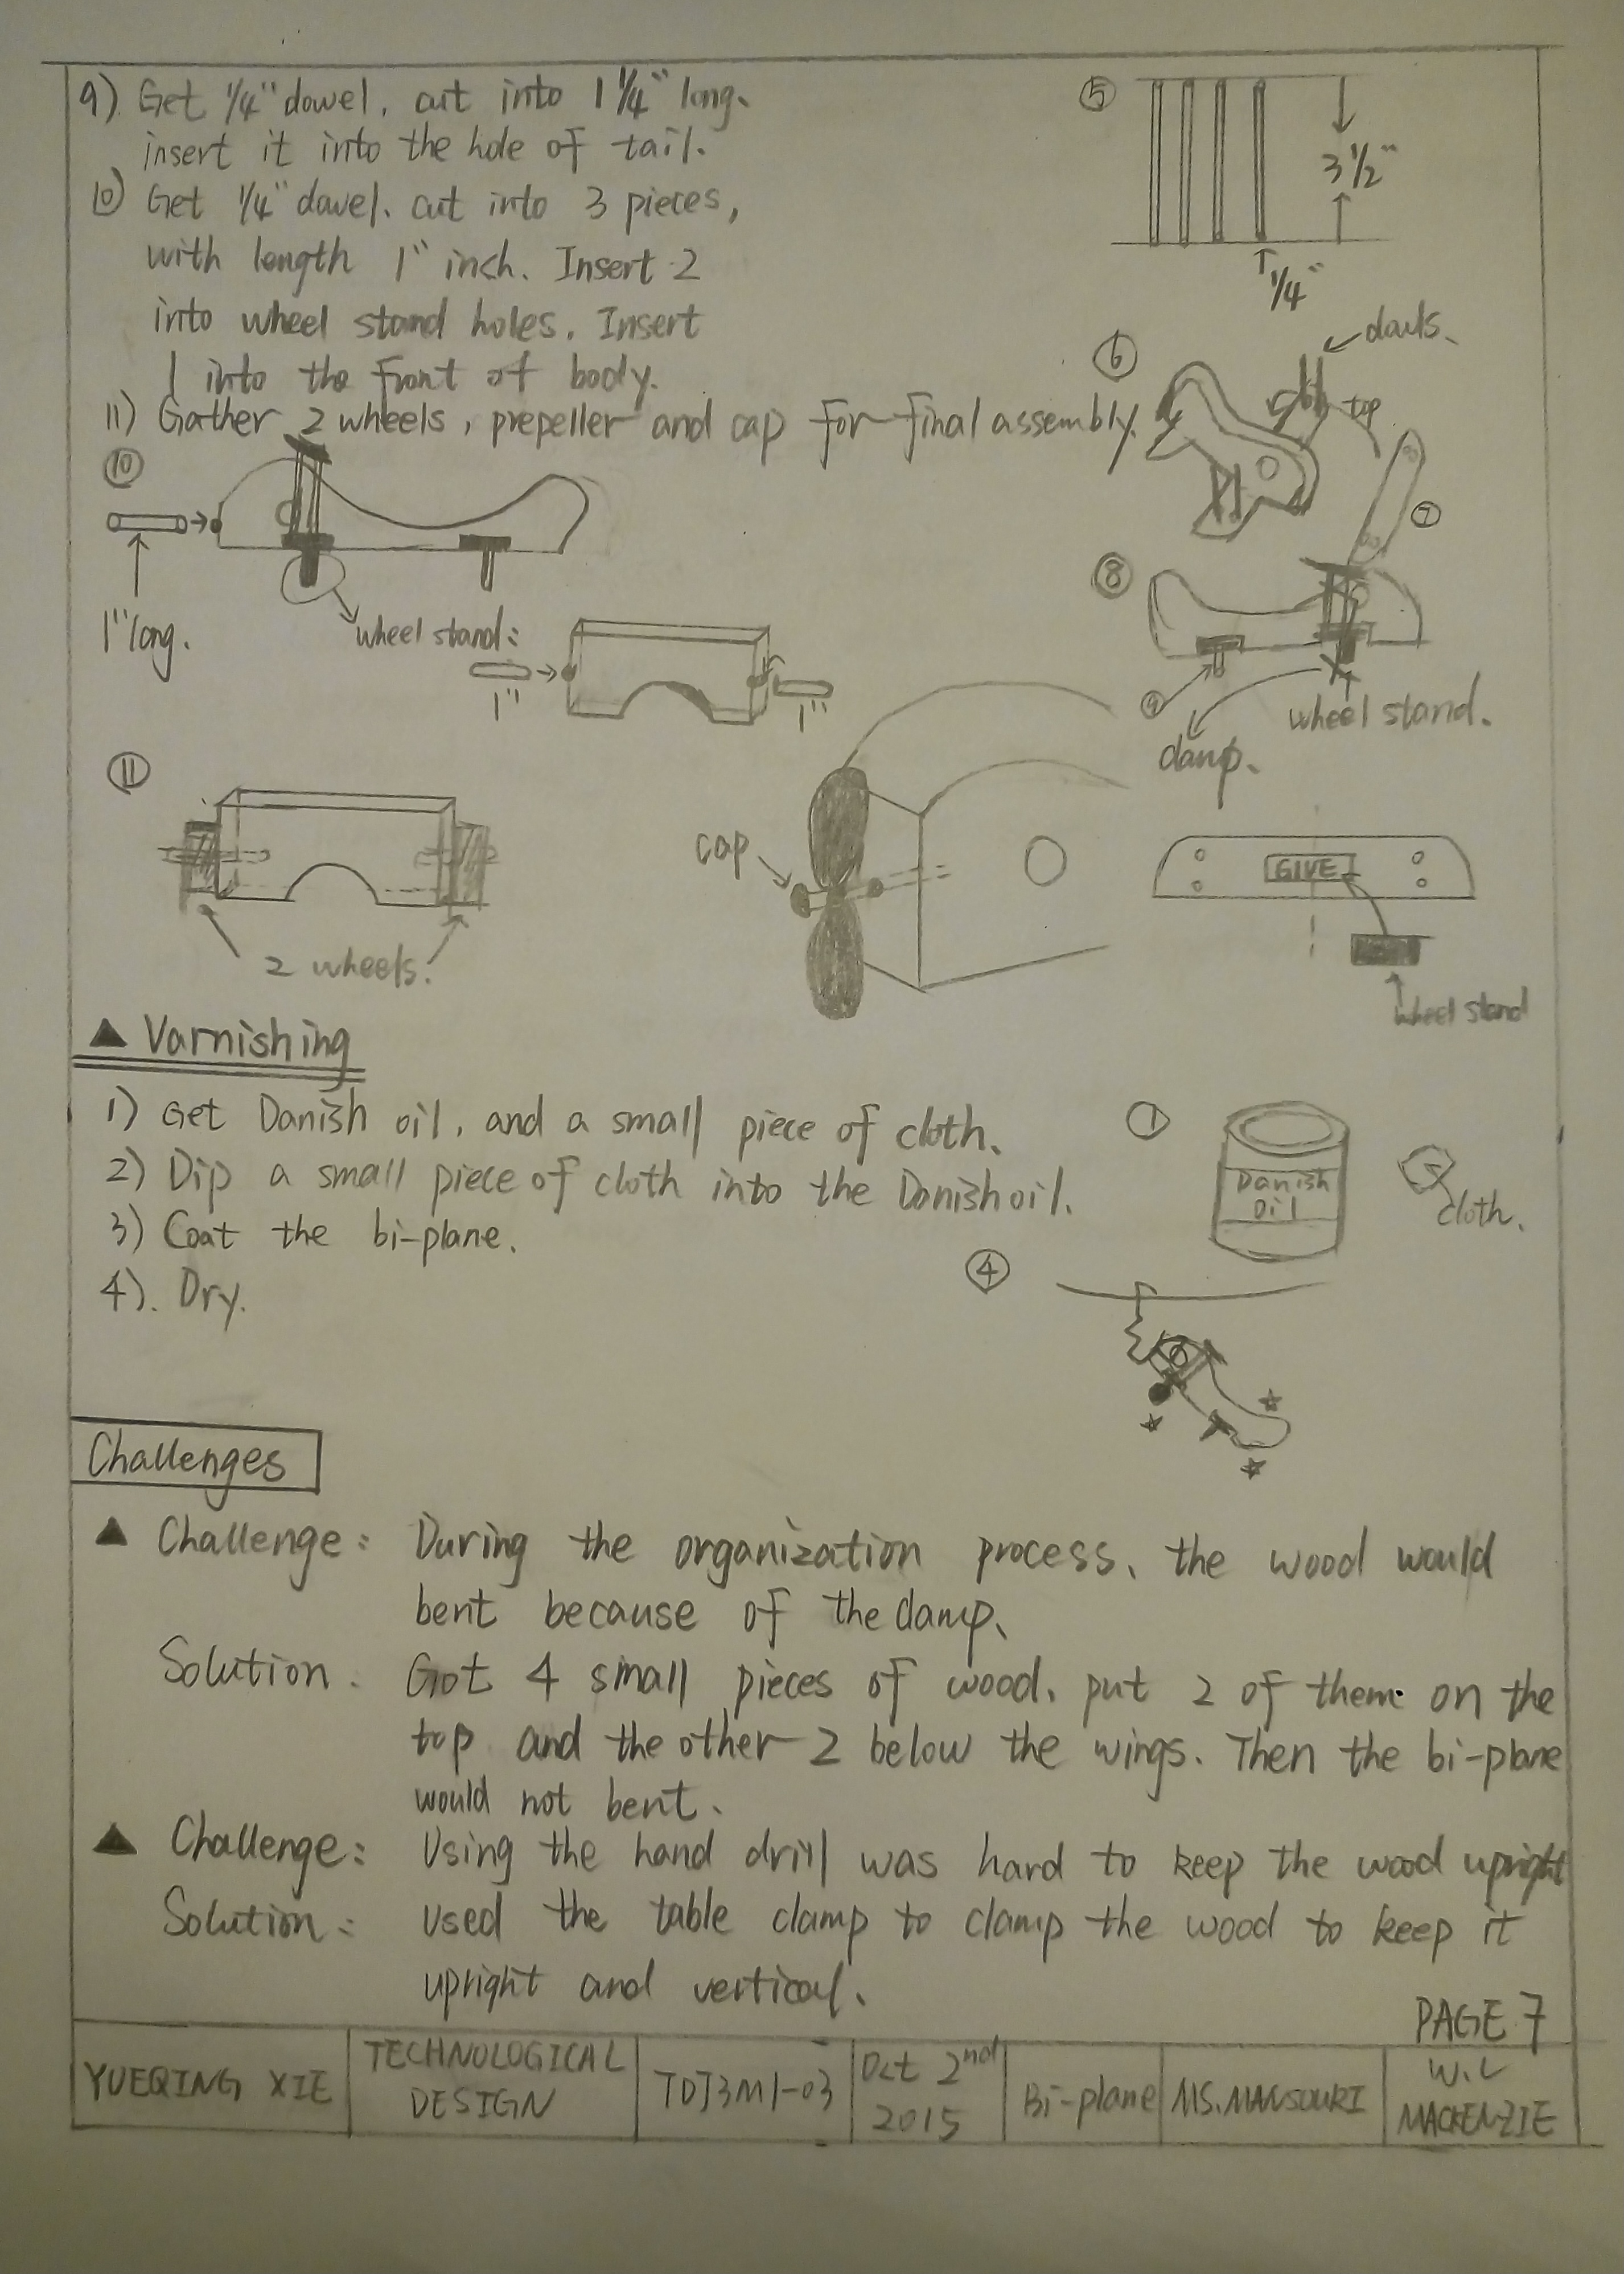 9) Get 1/4" dowel, cut into 1 1/4" long.
insert it into the hole of tail.
10) Get 1/4" dowel, cut into 3 pieces,
with length 1" inch. Insert 2
into wheel stand holes. Insert
1 into the front of body.
11) Gather 2 wheels, prepeller and cap for final assembly.
⑤
3 1/2"
1/4"
⑥
dowls.
top
⑦
⑧
⑨
wheel stand.
clamp.
⑩
1" long.
wheel stand:
1"
1"
⑪
2 wheels.
cap
GIVE
wheel stand
▲ Varnishing
1) Get Danish oil, and a small piece of cloth.
2) Dip a small piece of cloth into the Danish oil.
3) Coat the bi-plane.
4). Dry.
①
Danish
Oil
cloth.
④
Challenges
▲ Challenge: During the organization process, the wood would
bent because of the clamp.
Solution: Got 4 small pieces of wood, put 2 of them on the
top and the other 2 below the wings. Then the bi-plane
would not bent.
▲ Challenge: Using the hand drill was hard to keep the wood upright
Solution: Used the table clamp to clamp the wood to keep it
upright and vertical.
PAGE 7
YUEQING XIE
TECHNOLOGICAL
DESIGN
TDJ3M1-03
Oct 2nd
2015
Bi-plane
MS.MANSOURI
W.L
MACKENZIE